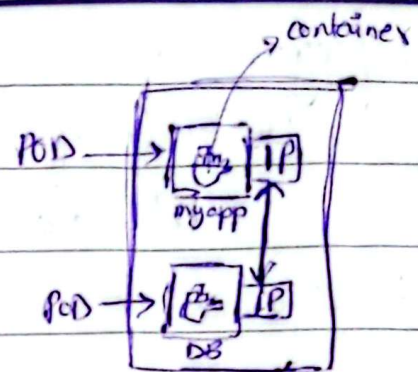 container
POD
IP
myapp
POD
IP
DB